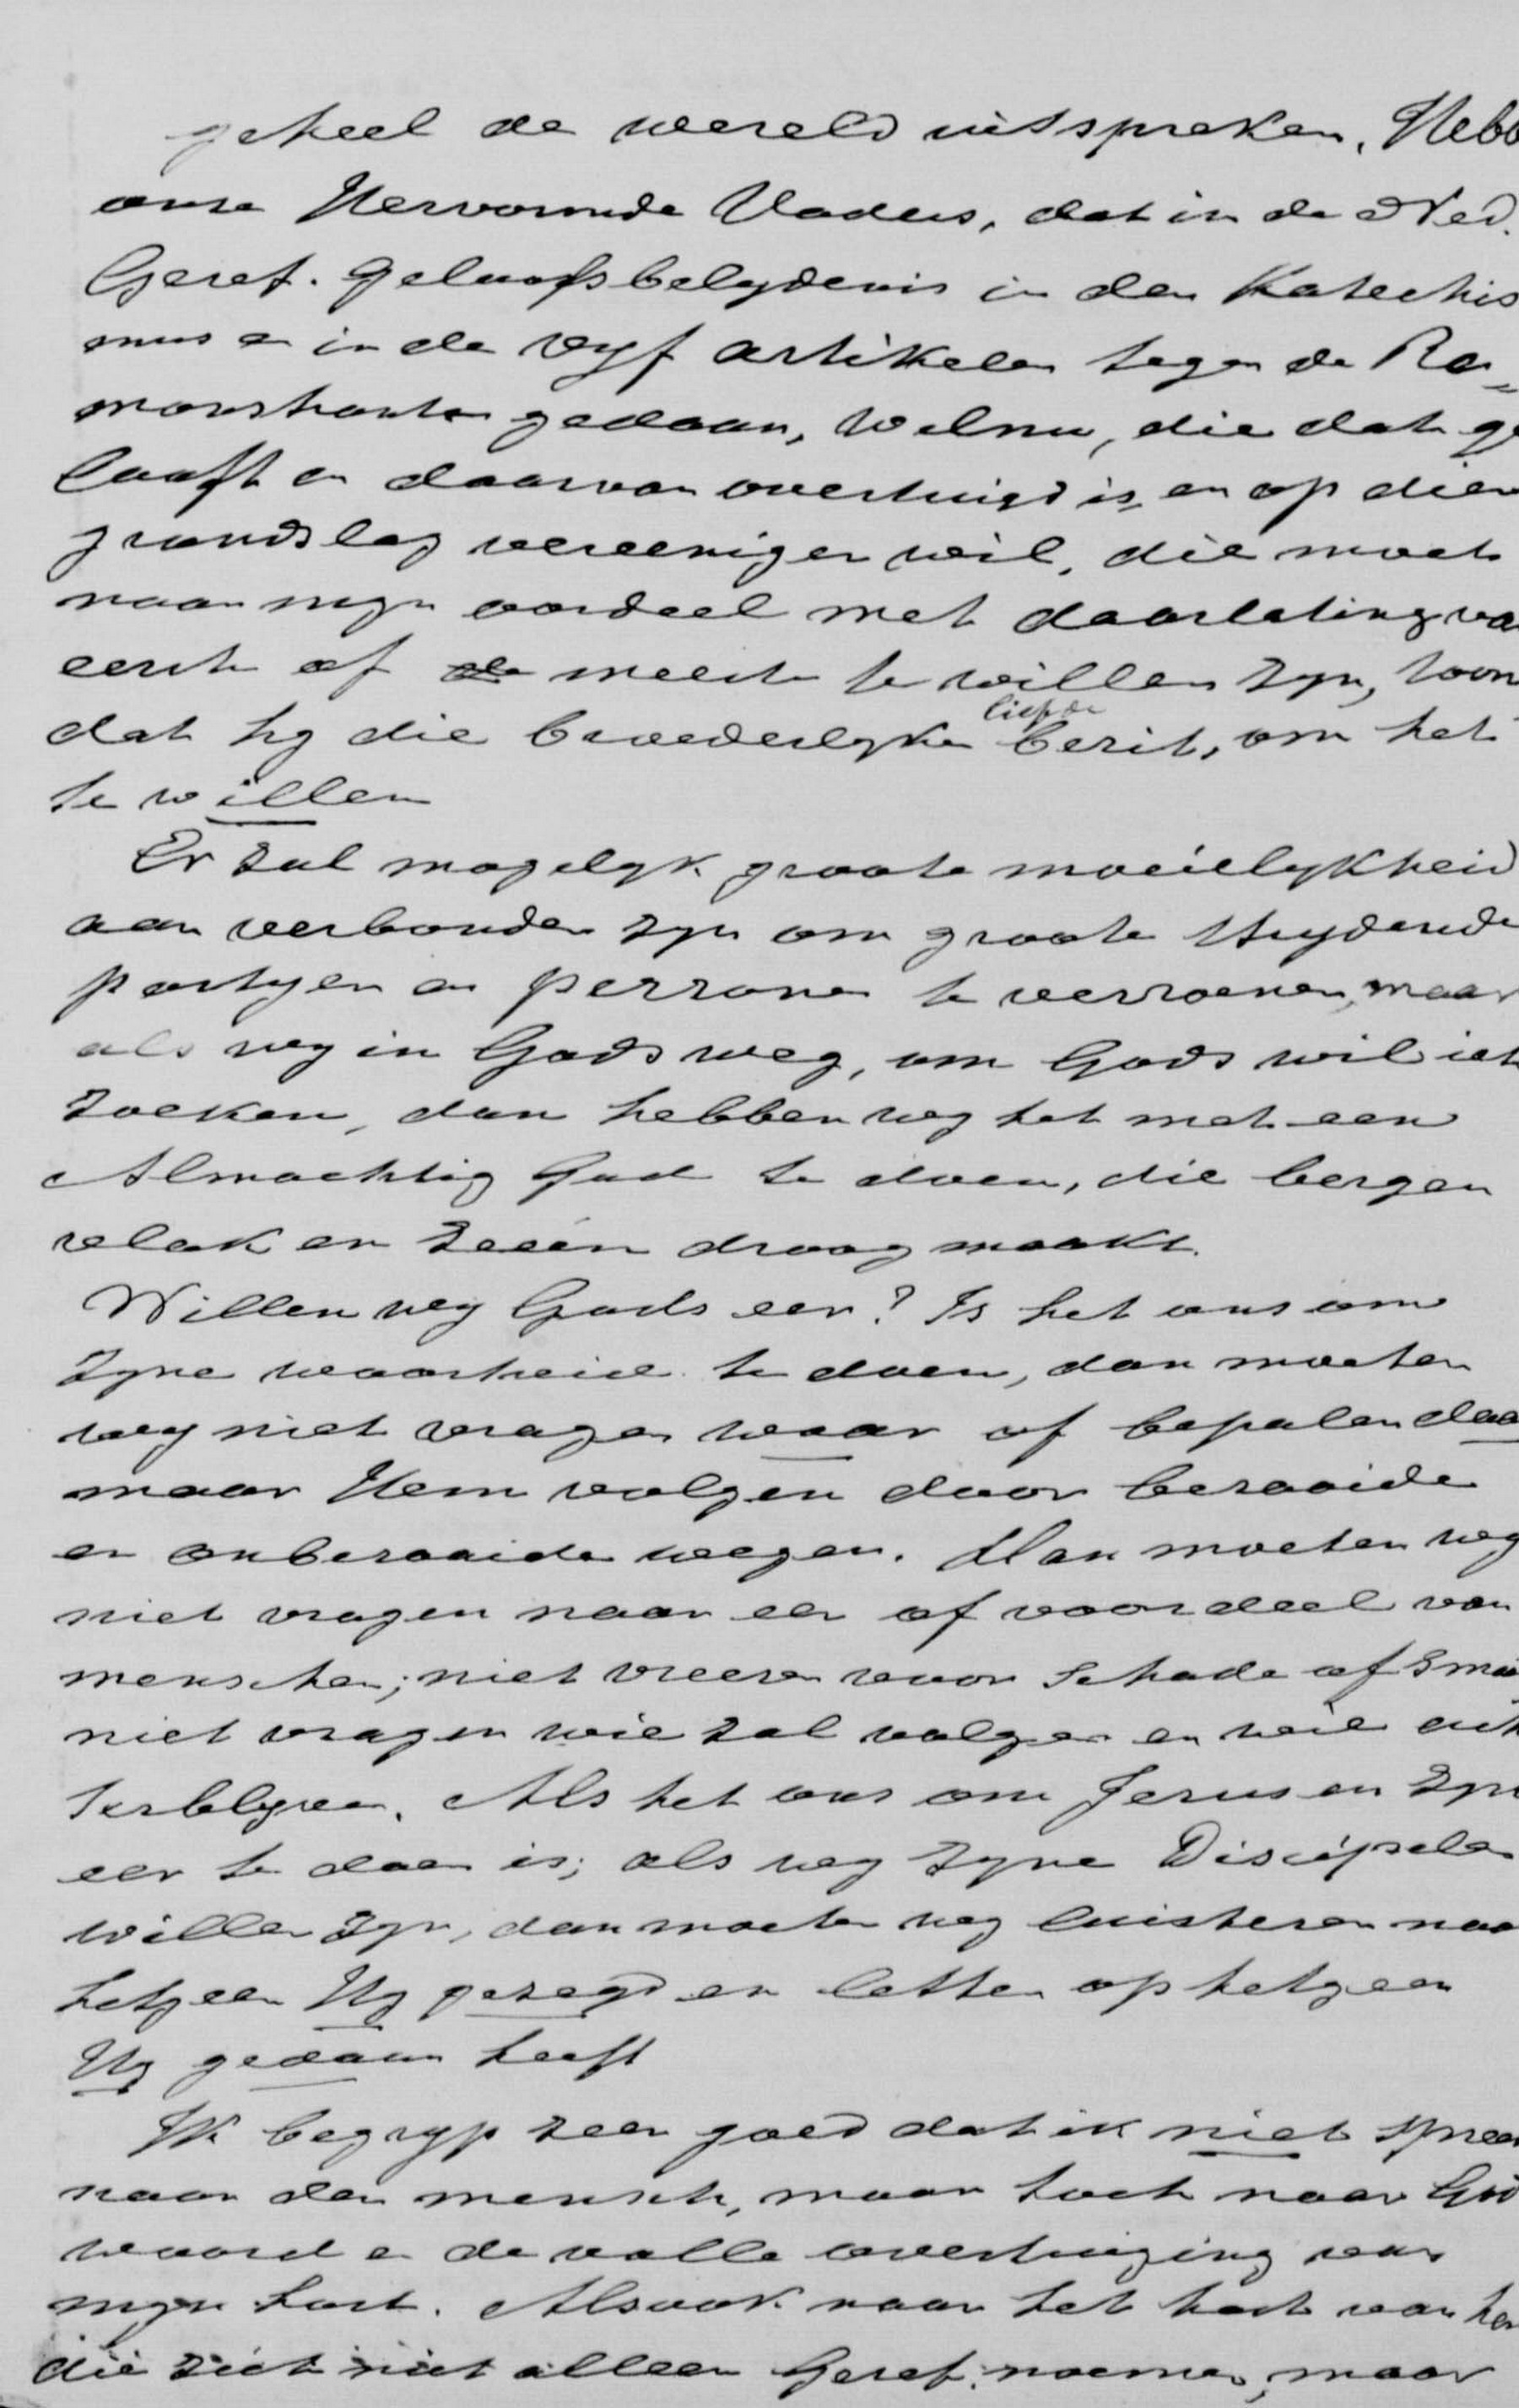 geheel de wereld uitspreken, Hebb
onze Hervormde Vaders, dat in de Ned.
Geref. geloofsbelydenis in den Katechis
mus en in de vyf artikelen tegen de Re=
monstranten gedaan, Welnu, die dat ge
looft en daarvan overtuigd is, en op dien
grondslag vereenigen wil, die moet
naar myn oordeel met daarlating van
eerste of de meeste te willen zyn, toon
dat hy die broederlyke liefde bezit, om het
te willen
Er zal mogelyk groote moeielykheid
aan verbonden zyn om groote strydende
partyen en personen te verzoenen, maar
als wy in Gods weg, om Gods wil iets
zoeken, dan hebben wy het met een
Almachtig God te doen, die bergen
vlak en zeeën droog maakt.
Willen wy Gods eer? Is het ons om
Zyne waarheid te doen, dan moeten
wy niet vragen waar of bepalen daa
maar Hem volgen door bezaaide
en onbezaaide wegen. Dan moeten wy
niet vragen naar eer of voordeel van
menschen; niet vreezen voor schade of smaa
niet vragen wie zal volgen en wie ach
terblyven. Als het ons om Jezus en Zyn
eer te doen is; als wy Zyne Discipelen
willen zyn, dan moeten wy luisteren naa
hetgeen Hy gezegd en letten op hetgeen
Hy gedaan heeft
Ik begryp zeer goed dat ik niet spreek
naar den mensch, maar toch naar God
woord en de volle overtuiging van
myn hart. Alsook naar het hart van hen
die zich niet alleen Geref. noemen, maar